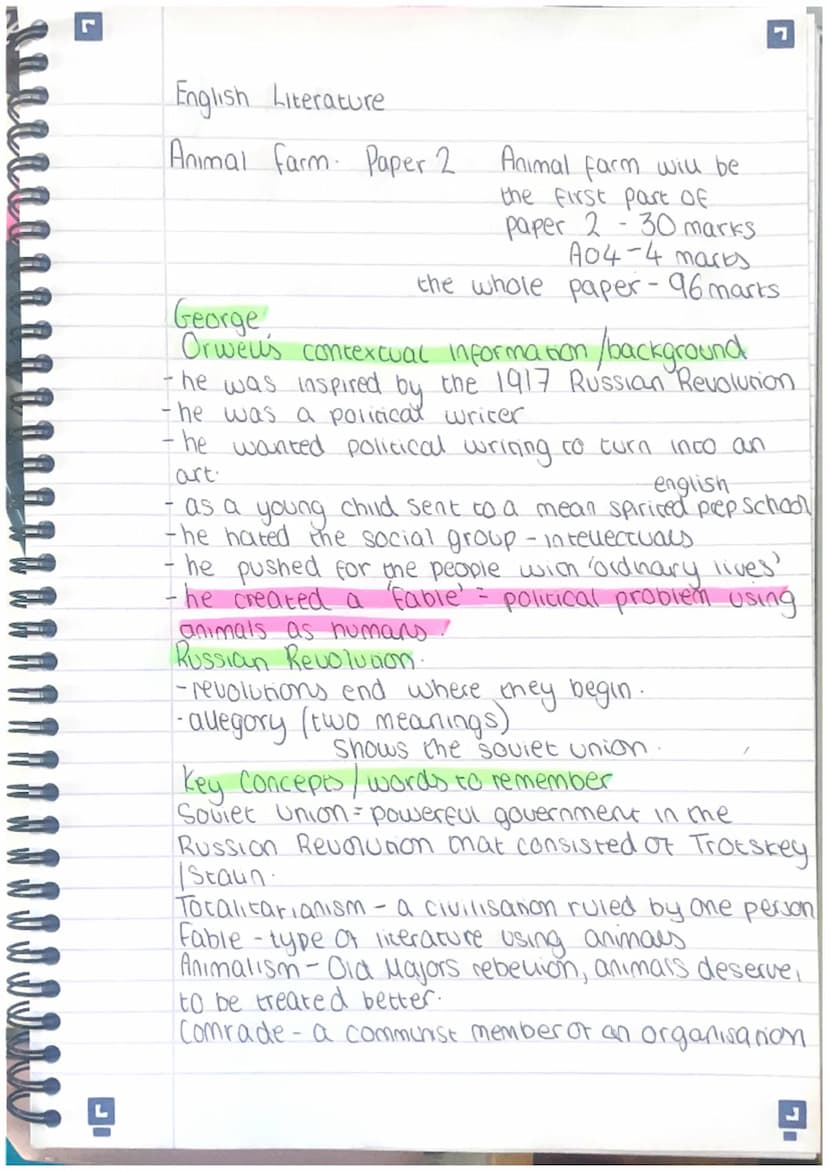 English Literature
Animal Farm. Paper 2
Animal farm will be
the first part of
paper 2 - 30 marks
AO4 - 4 marks
the whole paper - 96 marks
George
Orwell's contextual information /background
- he was inspired by the 1917 Russian Revolution
- he was a political writer
- he wanted political writing to turn into an
art.
english
- as a young child sent to a mean spirited prep school
- he hated the social group - intellectuals
- he pushed for the people with 'ordinary lives'
- he created a 'fable' = political problem using
animals as humans.
Russian Revolution.
- revolutions end where they begin.
- allegory (two meanings)
shows the soviet union.
Key Concepts / words to remember
Soviet Union = powerful government in the
Russian Revolution that consisted of Trotskey
/Stalin.
Totalitarianism - a civilisation ruled by one person
Fable - type of literature using animals
Animalism - Old Majors rebellion, animals deserve,
to be treated better.
Comrade - a communist member of an organisation